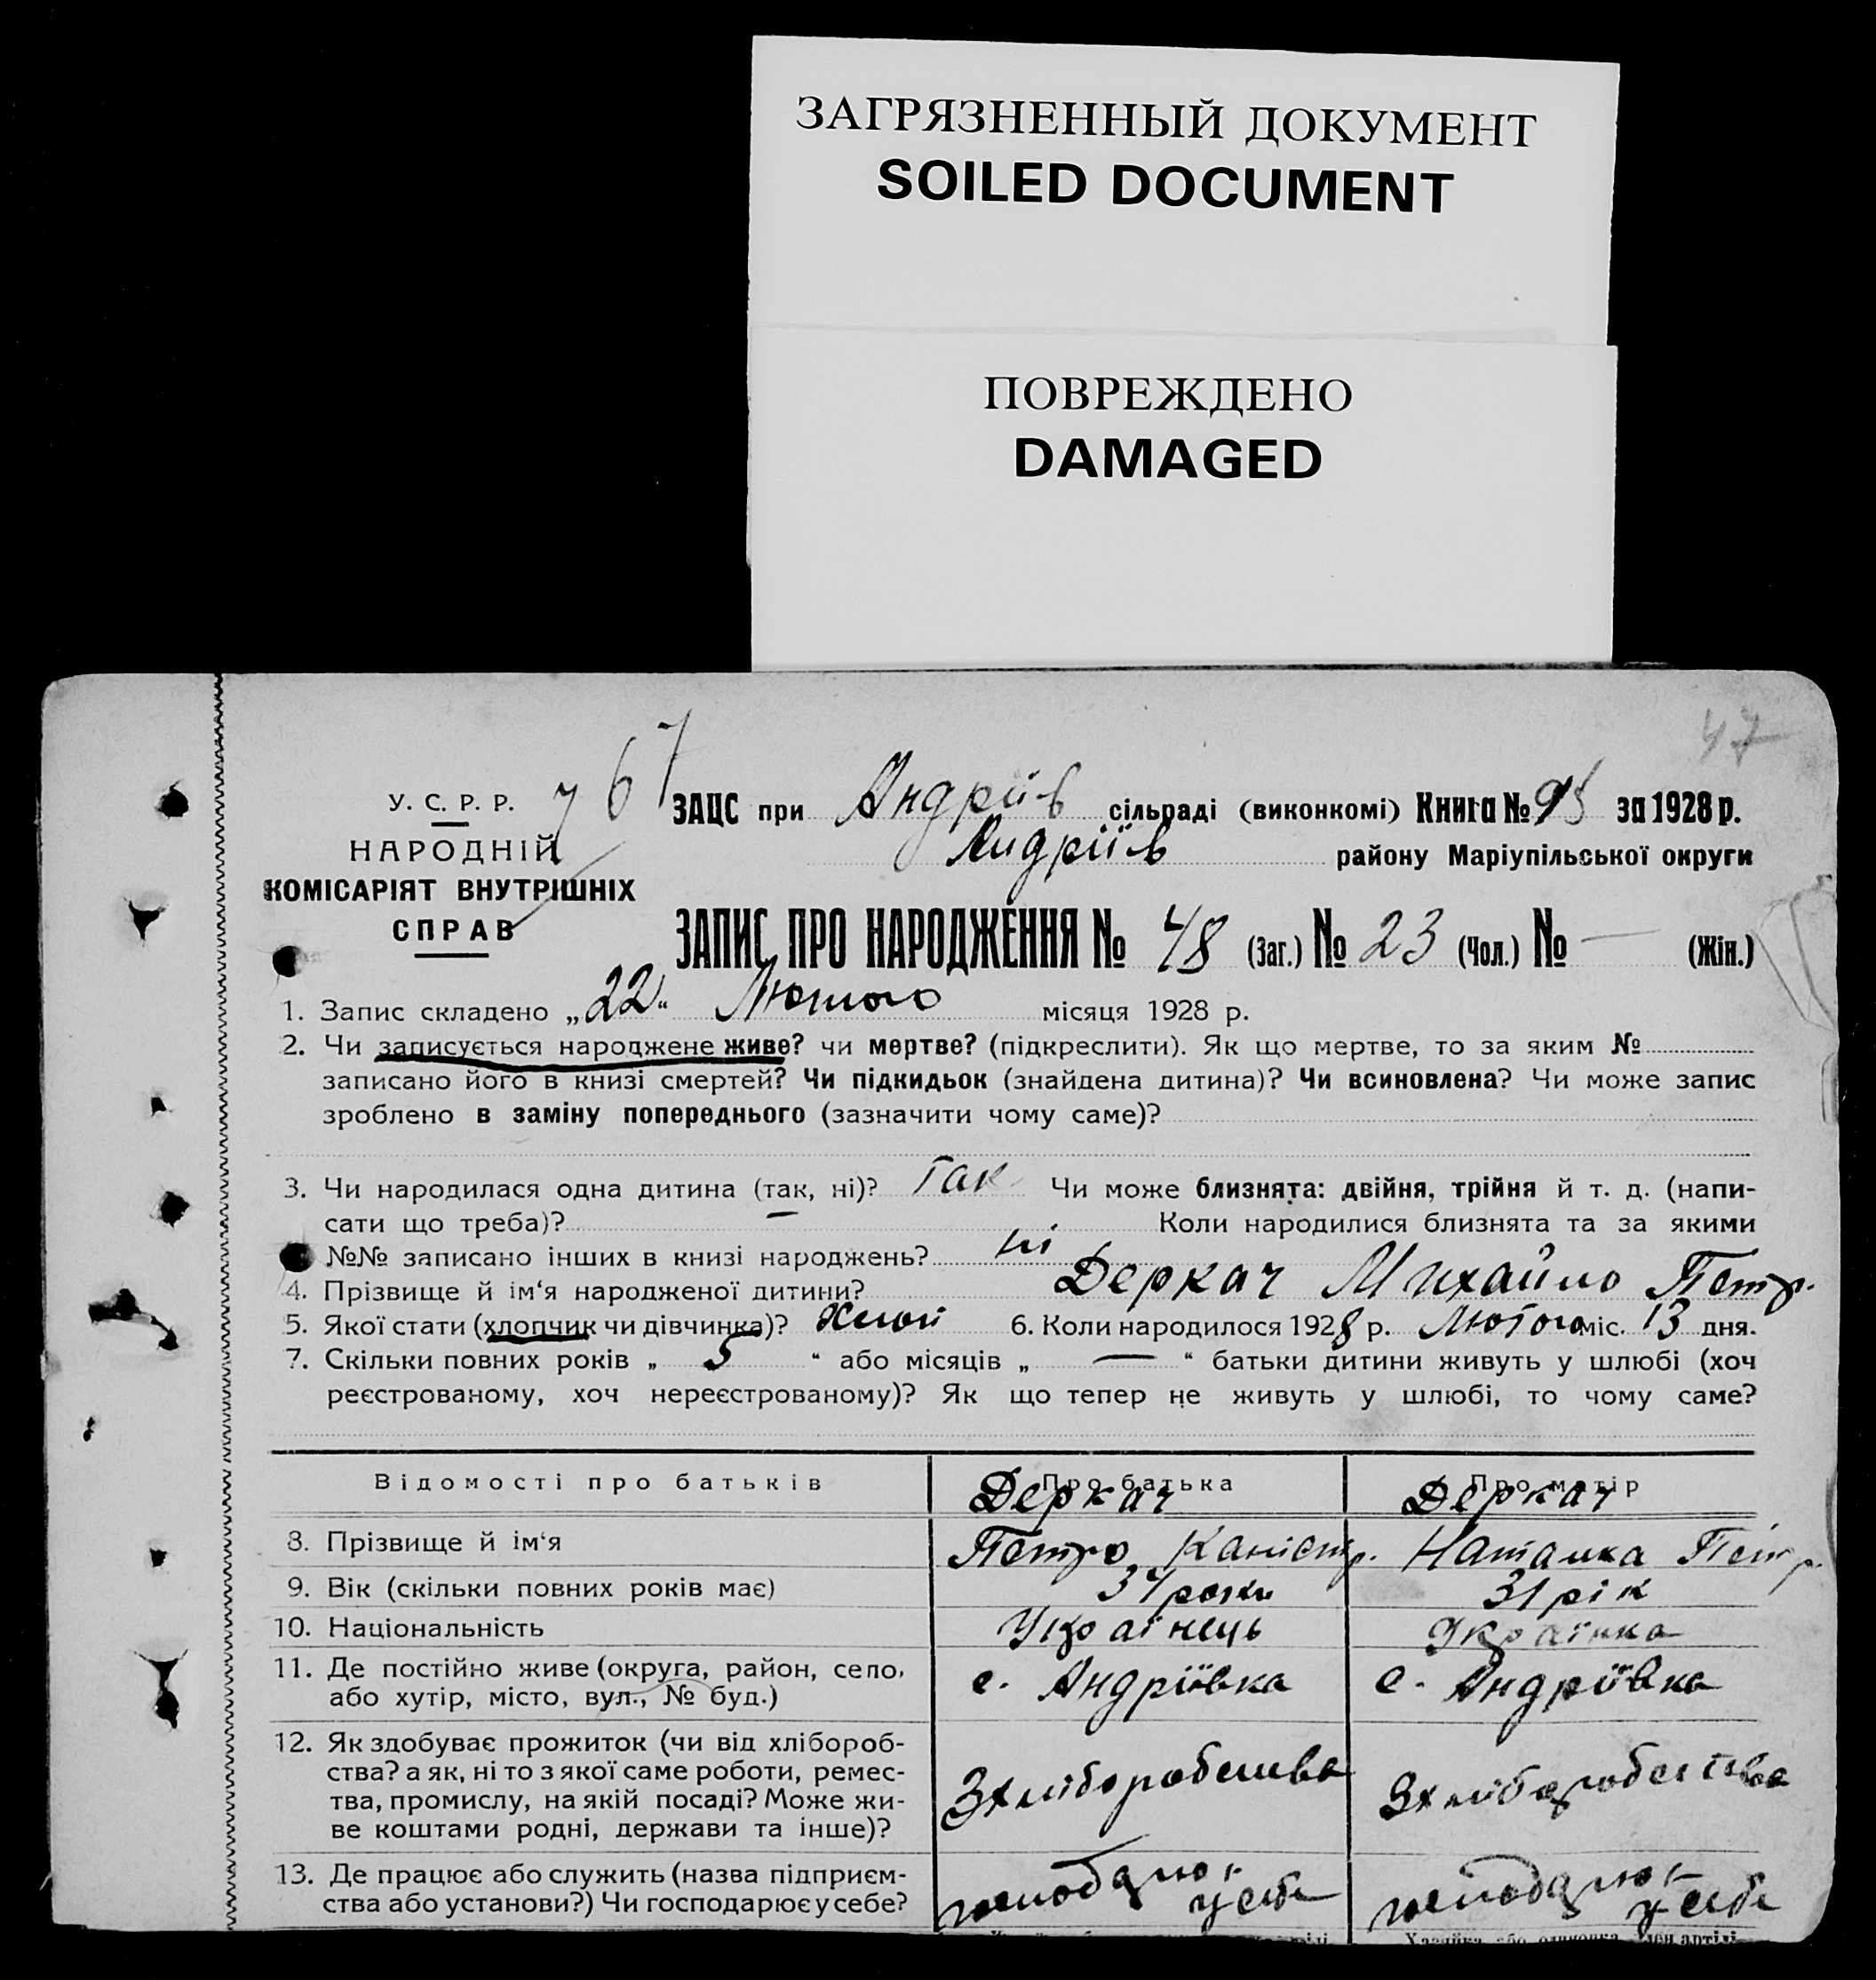 ЗАГРЯЗНЕННЫЙ ДОКУМЕНТ
SOILED DOCUMENT
ПОВРЕЖДЕНО
DAMAGED
47
767
У. С. Р. Р.
НАРОДНІЙ
КОМІСАРІЯТ ВНУТРІШНІХ
СПРАВ
ЗАЦС при Андріїв сільраді (виконкомі) Книга № за 1928 р.
Андріїв району Маріупільської округи
ЗАПИС ПРО НАРОДЖЕННЯ № 48 (Заг.) № 23 (Чол.) № — (Жін.)
1. Запис складено „22“ Лютого місяця 1928 р.
2. Чи записується народжене живе? чи мертве? (підкреслити). Як що мертве, то за яким №
записано його в книзі смертей? Чи підкидьок (знайдена дитина)? Чи всиновлена? Чи може запис
зроблено в заміну попереднього (зазначити чому саме)?
3. Чи народилася одна дитина (так, ні)? Так Чи може близнята: двійня, трійня й т. д. (напи-
сати що треба)? — Коли народилися близнята та за якими
№№ записано інших в книзі народжень? ні
4. Прізвище й ім‘я народженої дитини? Деркач Михайло Петр.
5. Якої стати (хлопчик чи дівчинка)? 6. Коли народилося 1928 р. Лютого міс. 13 дня.
7. Скільки повних років „ 5 “ або місяців „ — “ батьки дитини живуть у шлюбі (хоч
реєстрованому, хоч нереєстрованому)? Як що тепер не живуть у шлюбі, то чому саме?
Відомості про батьків Про батька Про матір
Деркач Деркач
8. Прізвище й ім‘я Петро Каністр. Наталка Петр.
9. Вік (скільки повних років має) 34 роки 31 рік
10. Національність Українець Українка
11. Де постійно живе (округа, район, село,
або хутір, місто, вул., № буд.) с. Андріївка с. Андріївка
12. Як здобуває прожиток (чи від хлібороб-
ства? а як, ні то з якої саме роботи, ремес-
тва, промислу, на якій посаді? Може жи-
ве коштами родні, держави та інше)? З хліборобства З хліборобства
13. Де працює або служить (назва підприєм-
ства або установи?) Чи господарює у себе? господарює у себе господарює у себе
Хазяйка або одиночка член артілі